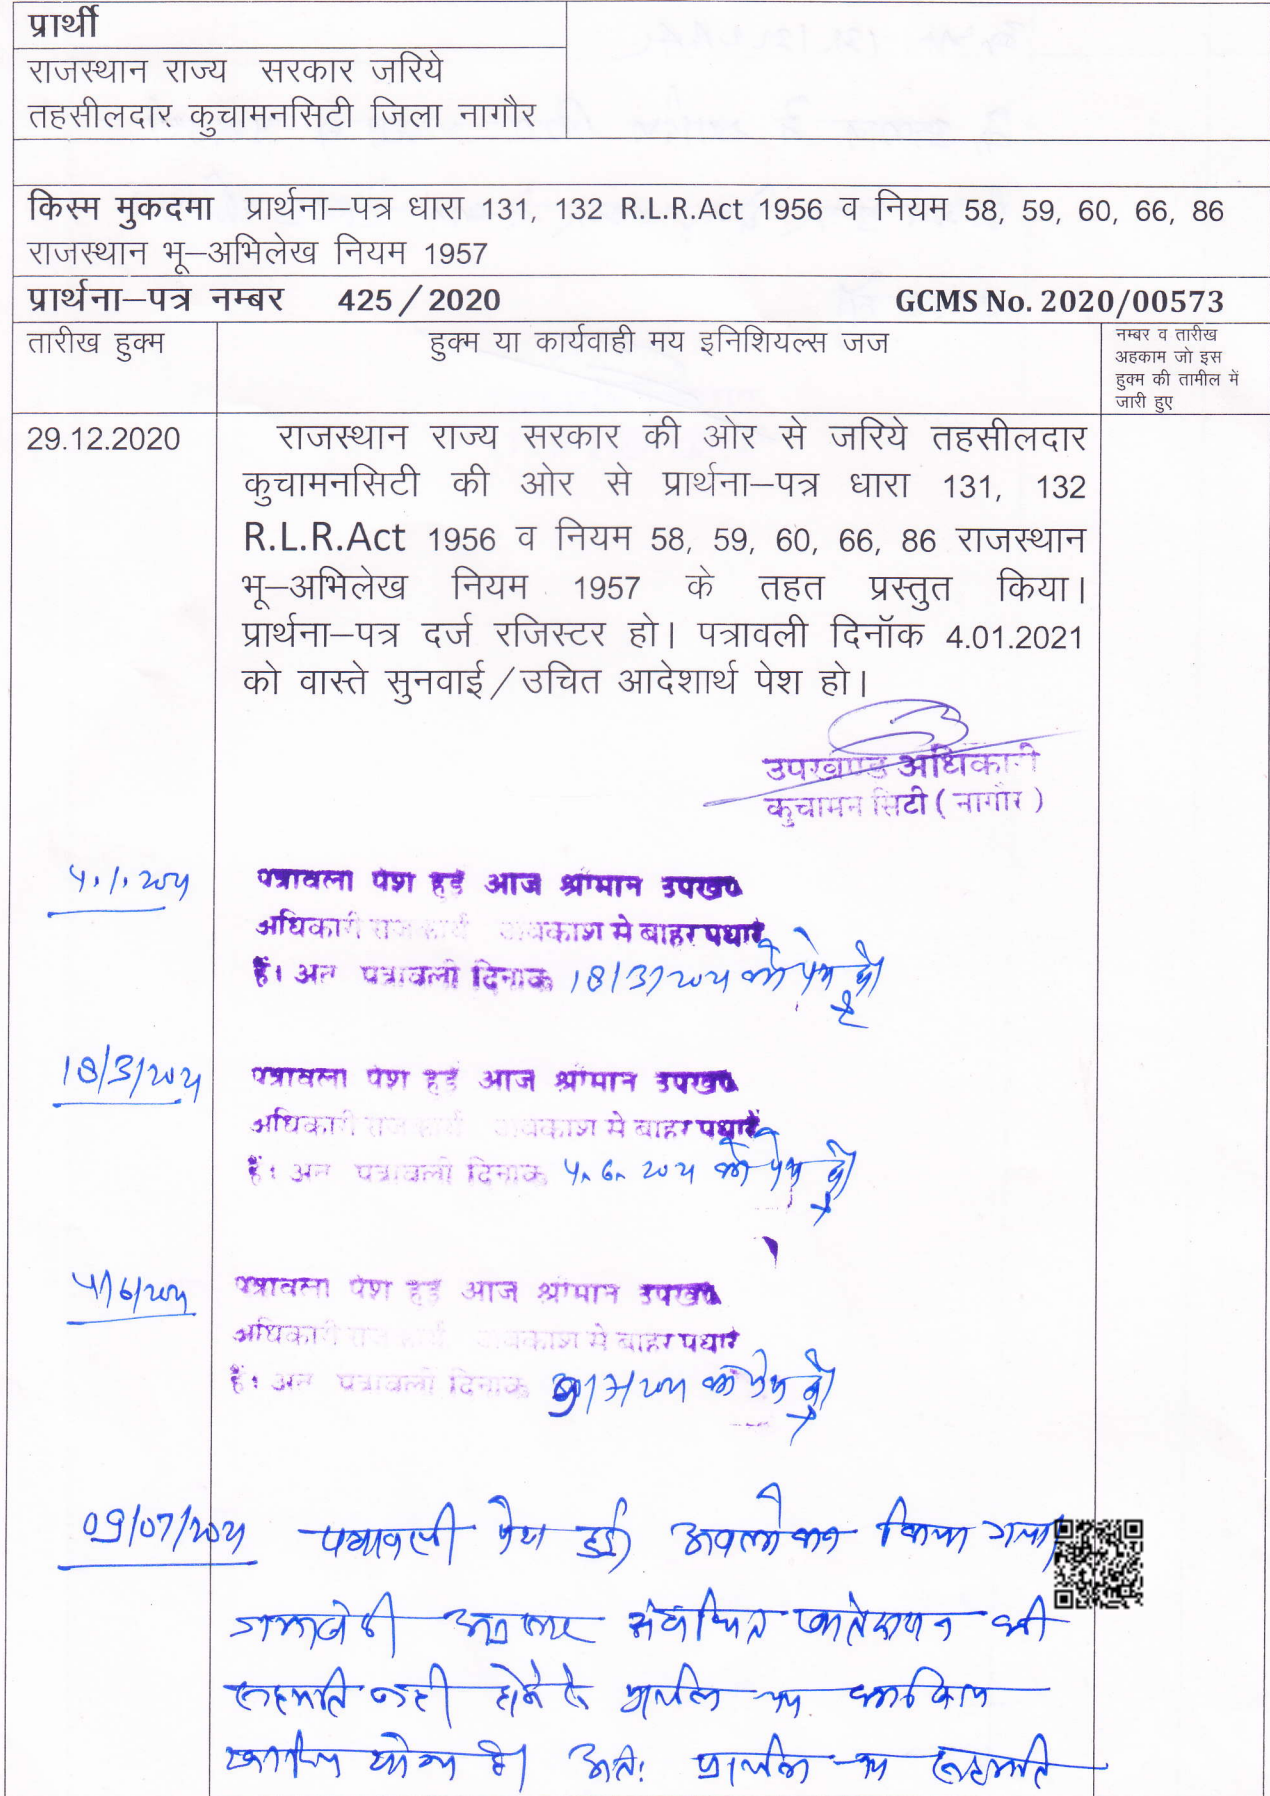 प्रार्थी
राजस्थान राज्य सरकार जरिये
तहसीलदार कुचामनसिटी जिला नागौर
किस्म मुकदमा प्रार्थना–पत्र धारा 131, 132 R.L.R.Act 1956 व नियम 58, 59, 60, 66, 86
राजस्थान भू–अभिलेख नियम 1957
प्रार्थना–पत्र नम्बर 425/2020 GCMS No. 2020/00573
तारीख हुक्म
हुक्म या कार्यवाही मय इनिशियल्स जज
नम्बर व तारीख
अहकाम जो इस
हुक्म की तामील में
जारी हुए
29.12.2020
राजस्थान राज्य सरकार की ओर से जरिये तहसीलदार
कुचामनसिटी की ओर से प्रार्थना–पत्र धारा 131, 132
R.L.R.Act 1956 व नियम 58, 59, 60, 66, 86 राजस्थान
भू–अभिलेख नियम 1957 के तहत प्रस्तुत किया।
प्रार्थना–पत्र दर्ज रजिस्टर हो। पत्रावली दिनॉक 4.01.2021
को वास्ते सुनवाई/उचित आदेशार्थ पेश हो।
उपखण्ड अधिकारी
कुचामन सिटी (नागौर)
4.1.2021
पत्रावली पेश हुई आज श्रीमान उपखण्ड
अधिकारी राजकार्य अवकाश से बाहर पधारे
हैं। अत पत्रावली दिनाक 18/3/2021 को पेश हो
18/3/2021
पत्रावली पेश हुई आज श्रीमान उपखण्ड
अधिकारी राजकार्य अवकाश से बाहर पधारे
हैं। अत पत्रावली दिनाक 4.6.2021 को पेश हो
4/6/2021
पत्रावली पेश हुई आज श्रीमान उपखण्ड
अधिकारी राजकार्य अवकाश से बाहर पधारे
हैं। अत पत्रावली दिनाक 9/7/2021 को पेश हो
09/07/2021
पत्रावली पेश हुई अवलोकन किया गया।
जमाबंदी अनुसार संबंधित खातेदारान की
सहमति नही होने से प्रार्थना पत्र
खारिज योग्य है। अतः प्रार्थना पत्र सहमति